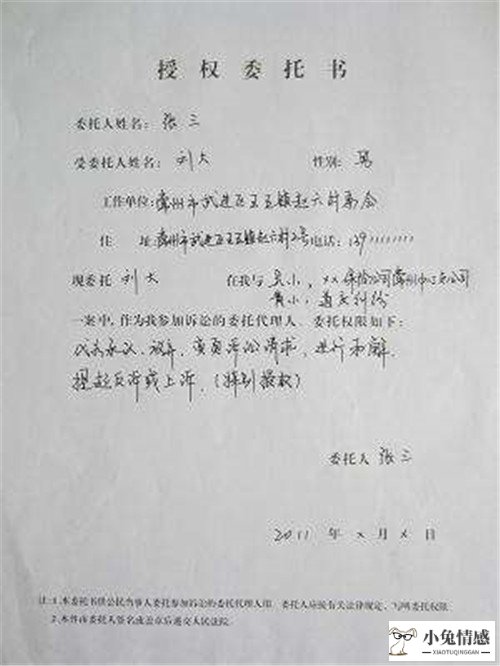 授权委托书
委托人姓名：张三
受委托人姓名：刘大 性别：男
工作单位：常州市武进区王五镇赵六村委会
住 址：常州市武进区王五镇赵六村2号 电话：139
现委托 刘大 在我与 吴小，××保险公司常州中心支公司
黄小，道交纠纷
一案中，作为我参加诉讼的委托代理人，委托权限如下：
代为承认、放弃、变更诉讼请求，进行和解，
提起反诉或上诉，（特别授权）
委托人 张三
2011 年 × 月 × 日
注：1.本委托书供公民当事人委托参加诉讼的委托代理人用，委托人应按有关法律规定，写明委托权限。
2.本件由委托人签名或盖章后递交人民法院。
小兔情感
XIAOTUQINGGAN